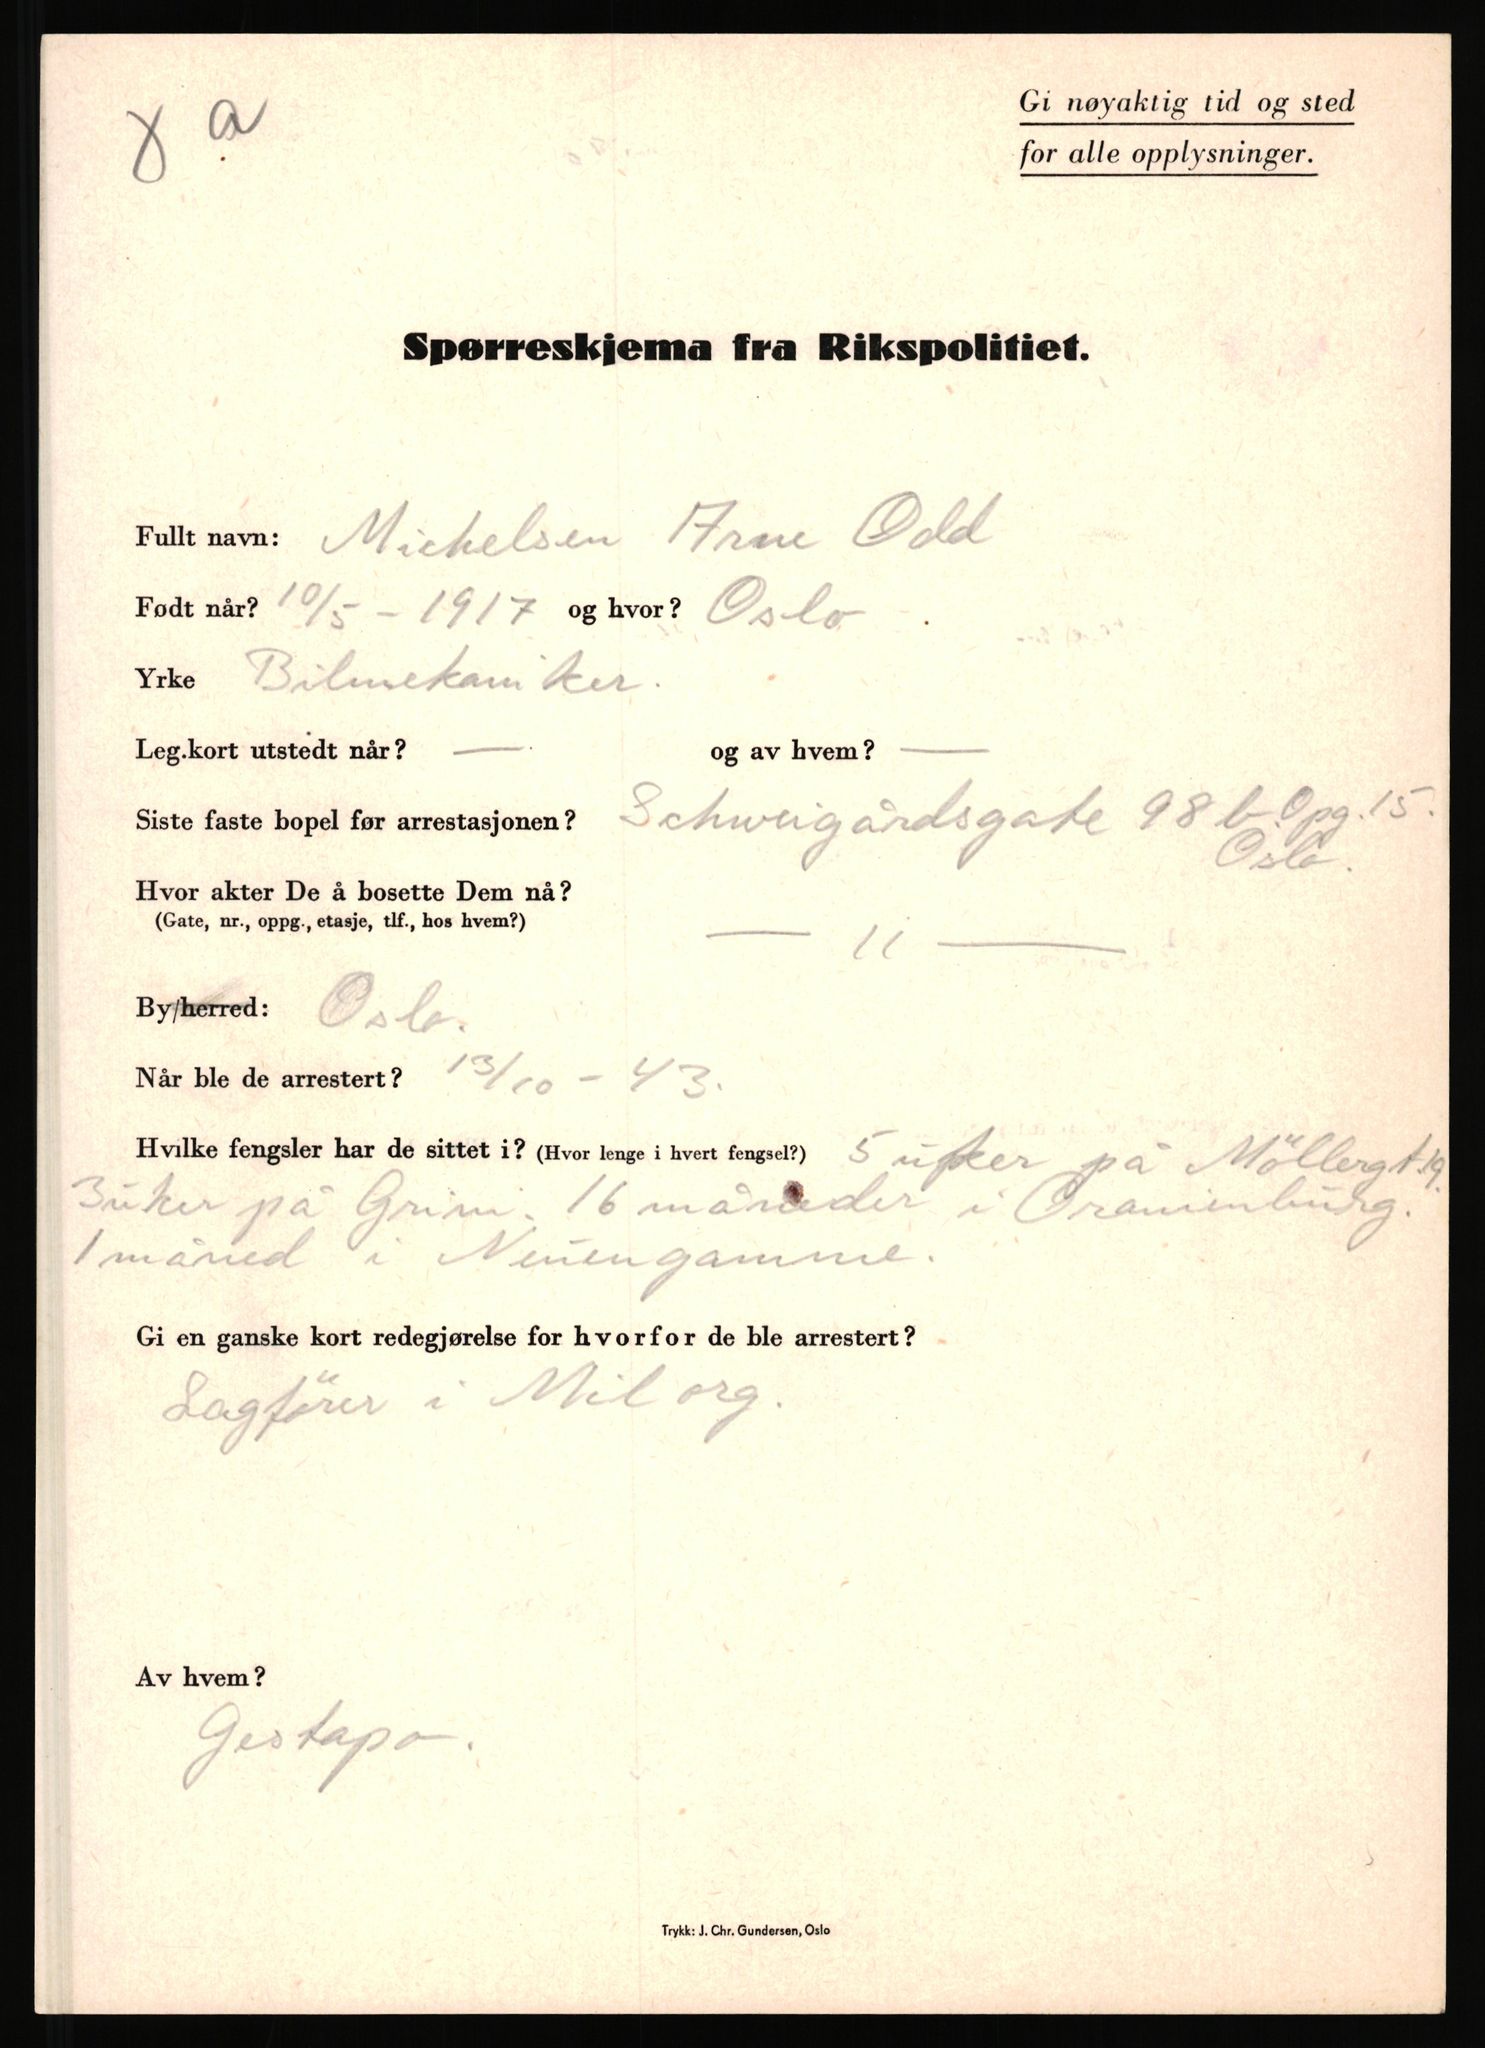 γ a
Gi nøyaktig tid og sted
for alle opplysninger.
Spørreskjema fra Rikspolitiet.
Fullt navn: Michelsen Arne Odd
Født når? 10/5 - 1917 og hvor? Oslo
Yrke Bilmekaniker.
Leg.kort utstedt når? — og av hvem? —
Siste faste bopel før arrestasjonen? Schweigårdsgate 98 b. Opg. 15.
Oslo.
Hvor akter De å bosette Dem nå?
(Gate, nr., oppg., etasje, tlf., hos hvem?)
— 11 —
By/herred: Oslo.
Når ble de arrestert? 13/10 - 43.
Hvilke fengsler har de sittet i? (Hvor lenge i hvert fengsel?) 5 uker på Möllergt. 19.
3 uker på Grini. 16 måneder i Oranienburg.
1 måned i Neuengamme.
Gi en ganske kort redegjørelse for hvorfor de ble arrestert?
Lagförer i Mil org.
Av hvem?
Gestapo.
Trykk: J. Chr. Gundersen, Oslo